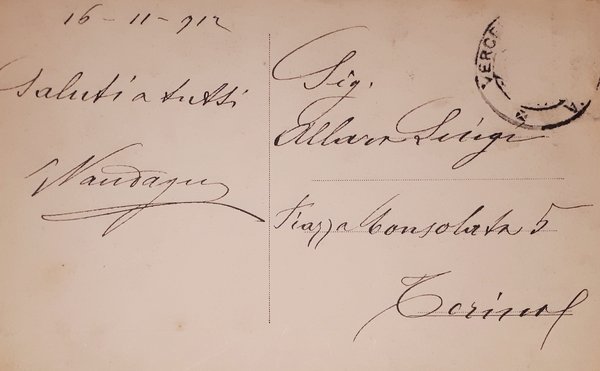 16-11-912
Saluti a tutti
Sig.
Allara Luigi
Piazza Consolata 5
Torino
VERCE